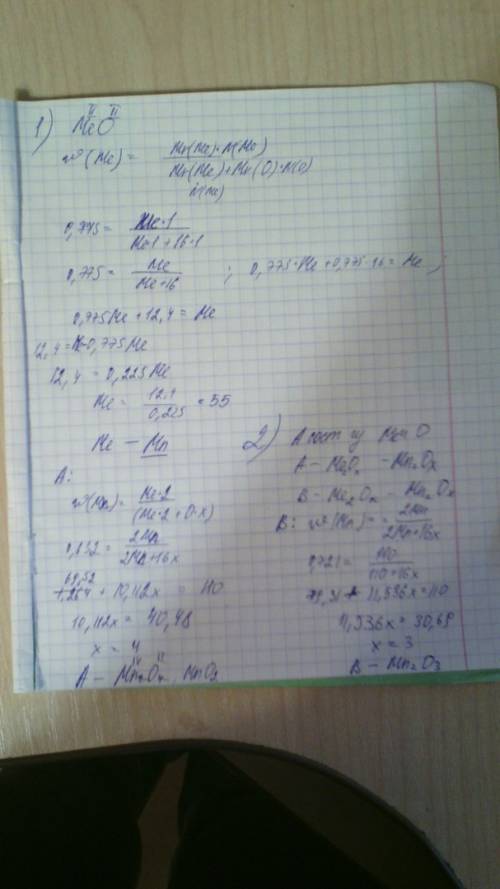 1) MeO
II II
w(Me) = Mr(Me)·N(Me) / Mr(Me)·N(Me) + Mr(O)·N(O)
0,775 = Me·1 / Me·1 + 16·1
0,775 = Me / Me+16 ; 0,775·Me + 0,775·16 = Me ;
0,775Me + 12,4 = Me
12,4 = Me-0,775Me
12,4 = 0,225Me
Me = 12,4 / 0,225 = 55
Me – Mn
A:
w(Mn) = Me·2 / (Me·2 + O·x)
0,632 = 2Mn / 2Mn+16x
69,52 + 10,112x = 110
10,112x = 40,48
x = 4
A – Mn2O4, MnO2
2) A сост из Me и O
A – Me2Ox – Mn2Ox
B – Me2Ox – Mn2Ox
B: w(Mn) = 2Mn / 2Mn+16x
0,721 = 110 / 110+16x
79,31 + 11,536x = 110
11,536x = 30,69
x = 3
B – Mn2O3